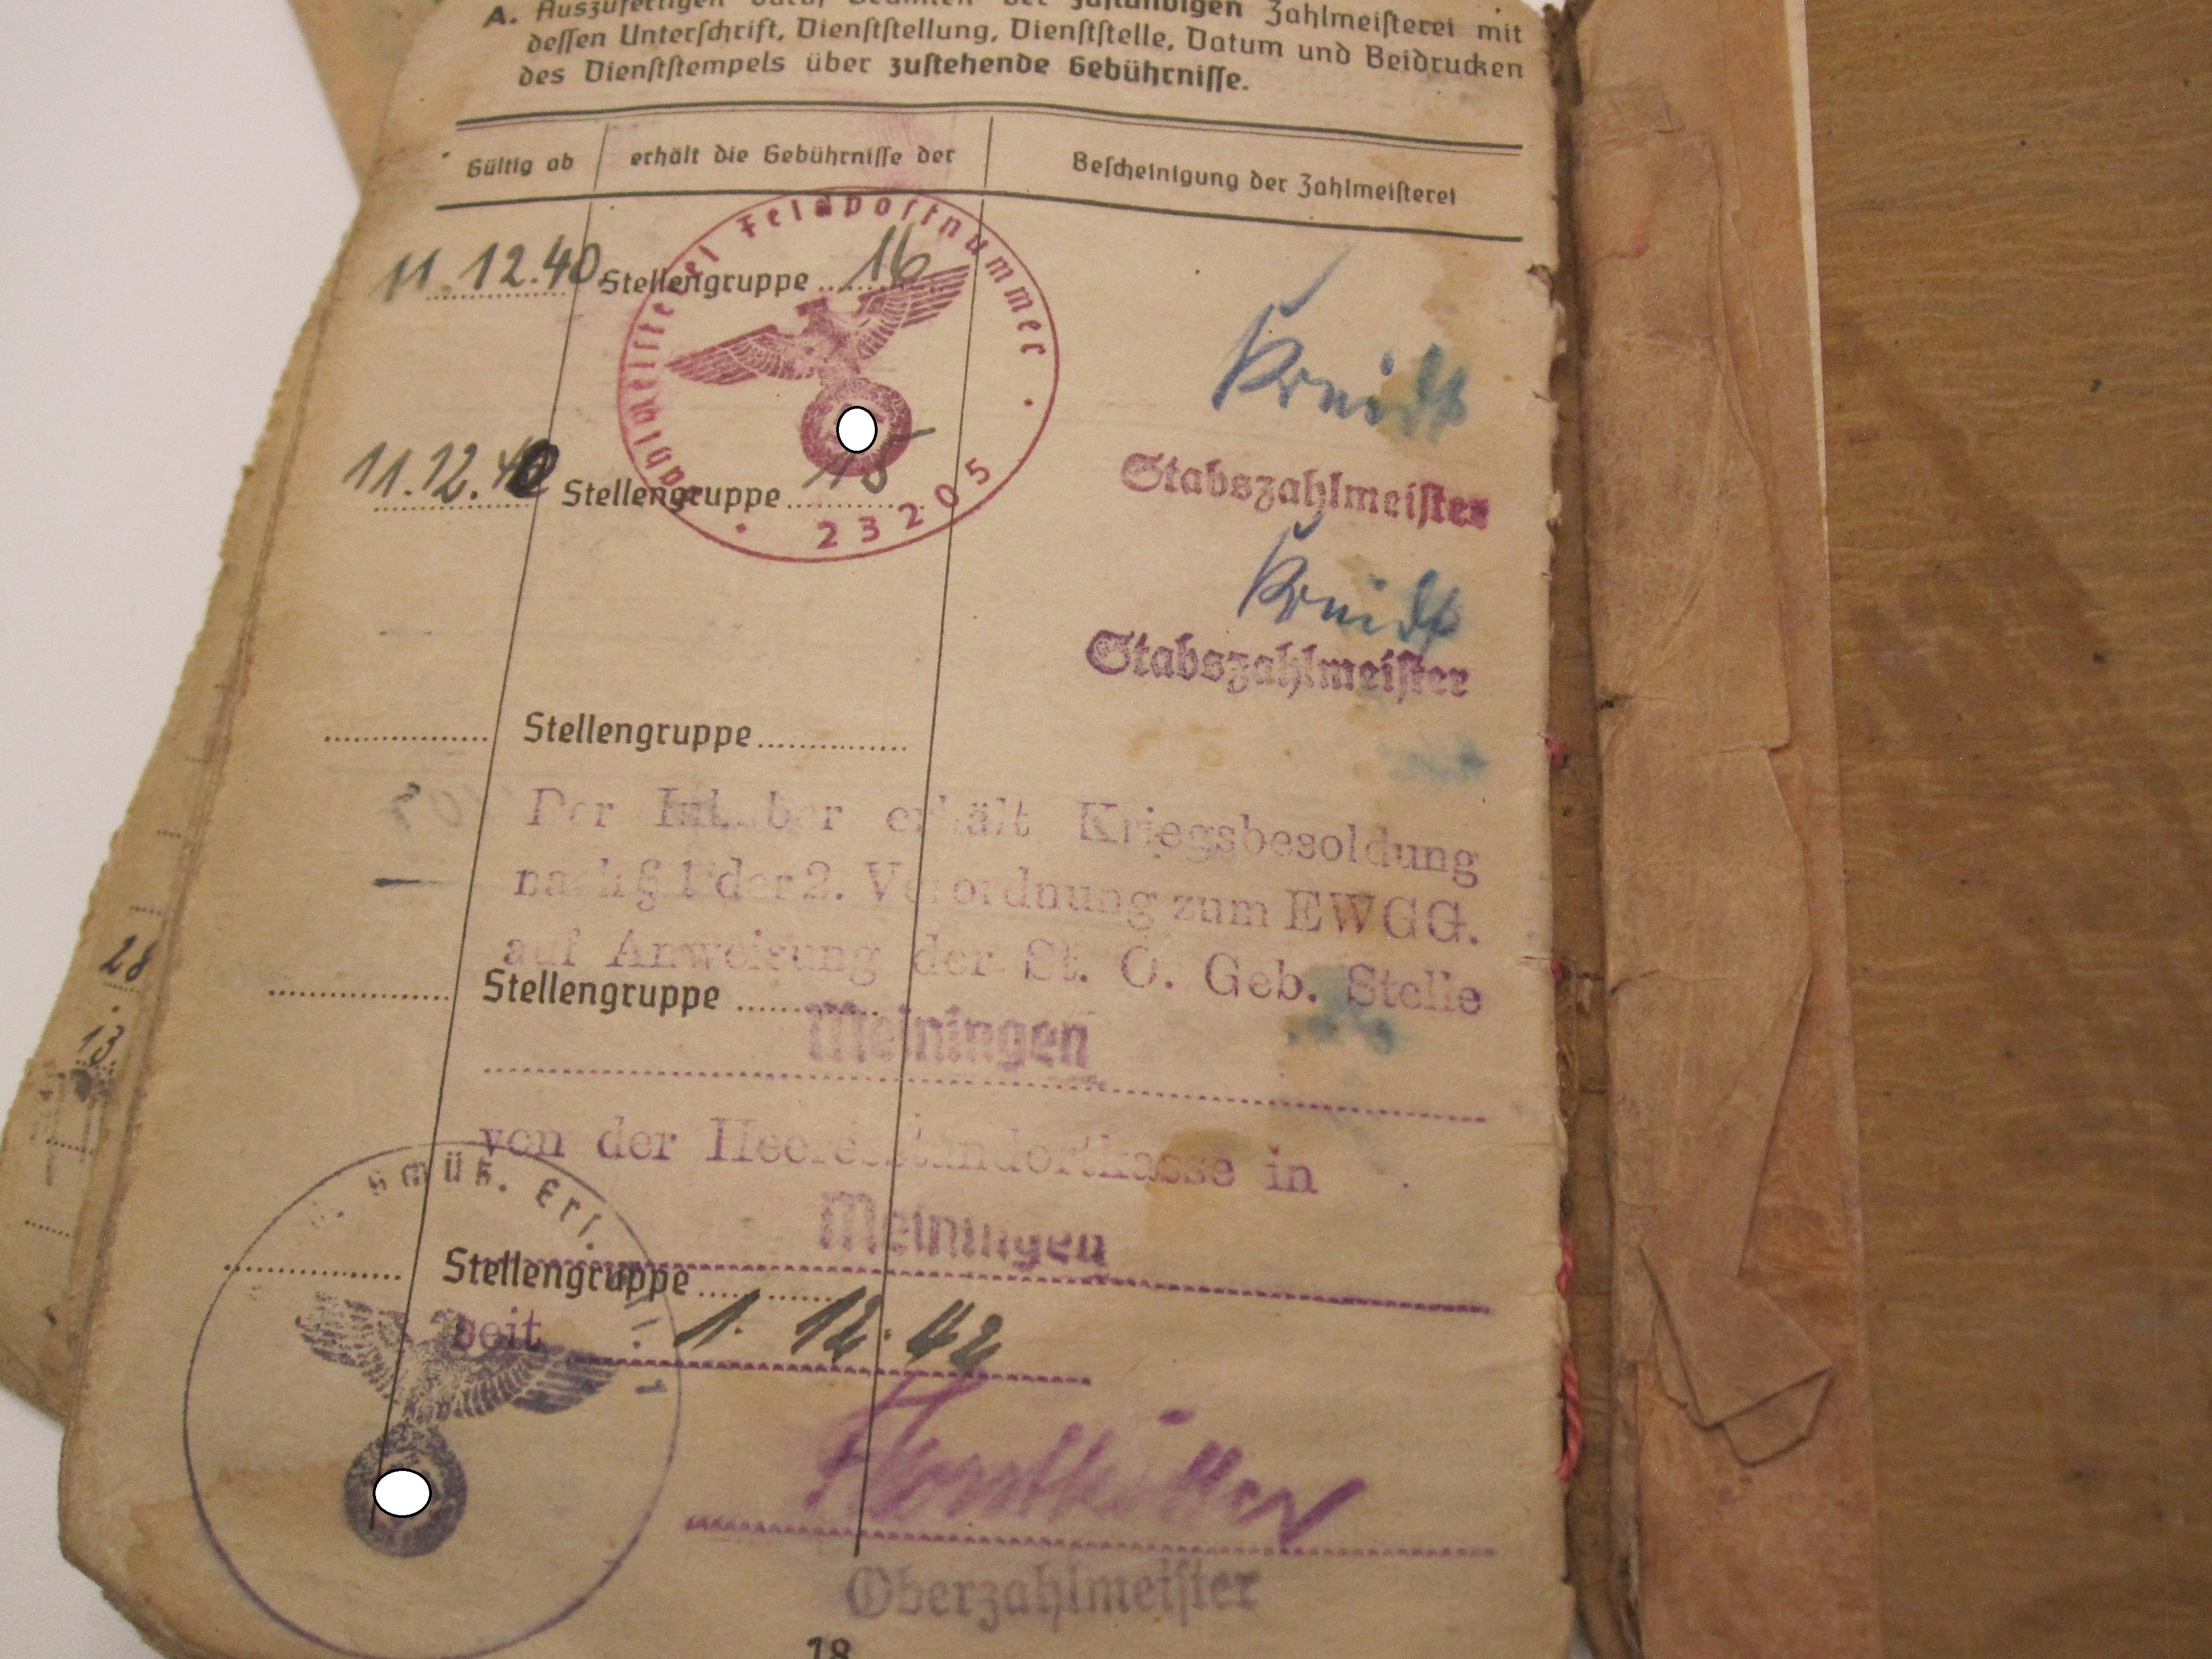 A. Auszufertigen zuständigen Zahlmeisterei mit
dessen Unterschrift, Dienststellung, Dienststelle, Datum und Beidrucken
des Dienststempels über zustehende Gebührnisse.
Gültig ab erhält die Gebührnisse der Bescheinigung der Zahlmeisterei
Zahlmeisterei Feldpostnummer
11.12.40 Stellengruppe 16
Kreidt
Stabszahlmeister
11.12.40 Stellengruppe 15
23205
Kreidt
Stabszahlmeister
Stellengruppe
Der Inhaber erhält Kriegsbesoldung
nach § 1 der 2. Verordnung zum EWGG.
auf Anweisung der St. O. Geb. Stelle
Stellengruppe
Meiningen
von der Heeresstandortkasse in
Meiningen
Stellengruppe
seit 1. 12. 42
Oberzahlmeister
18
28
13